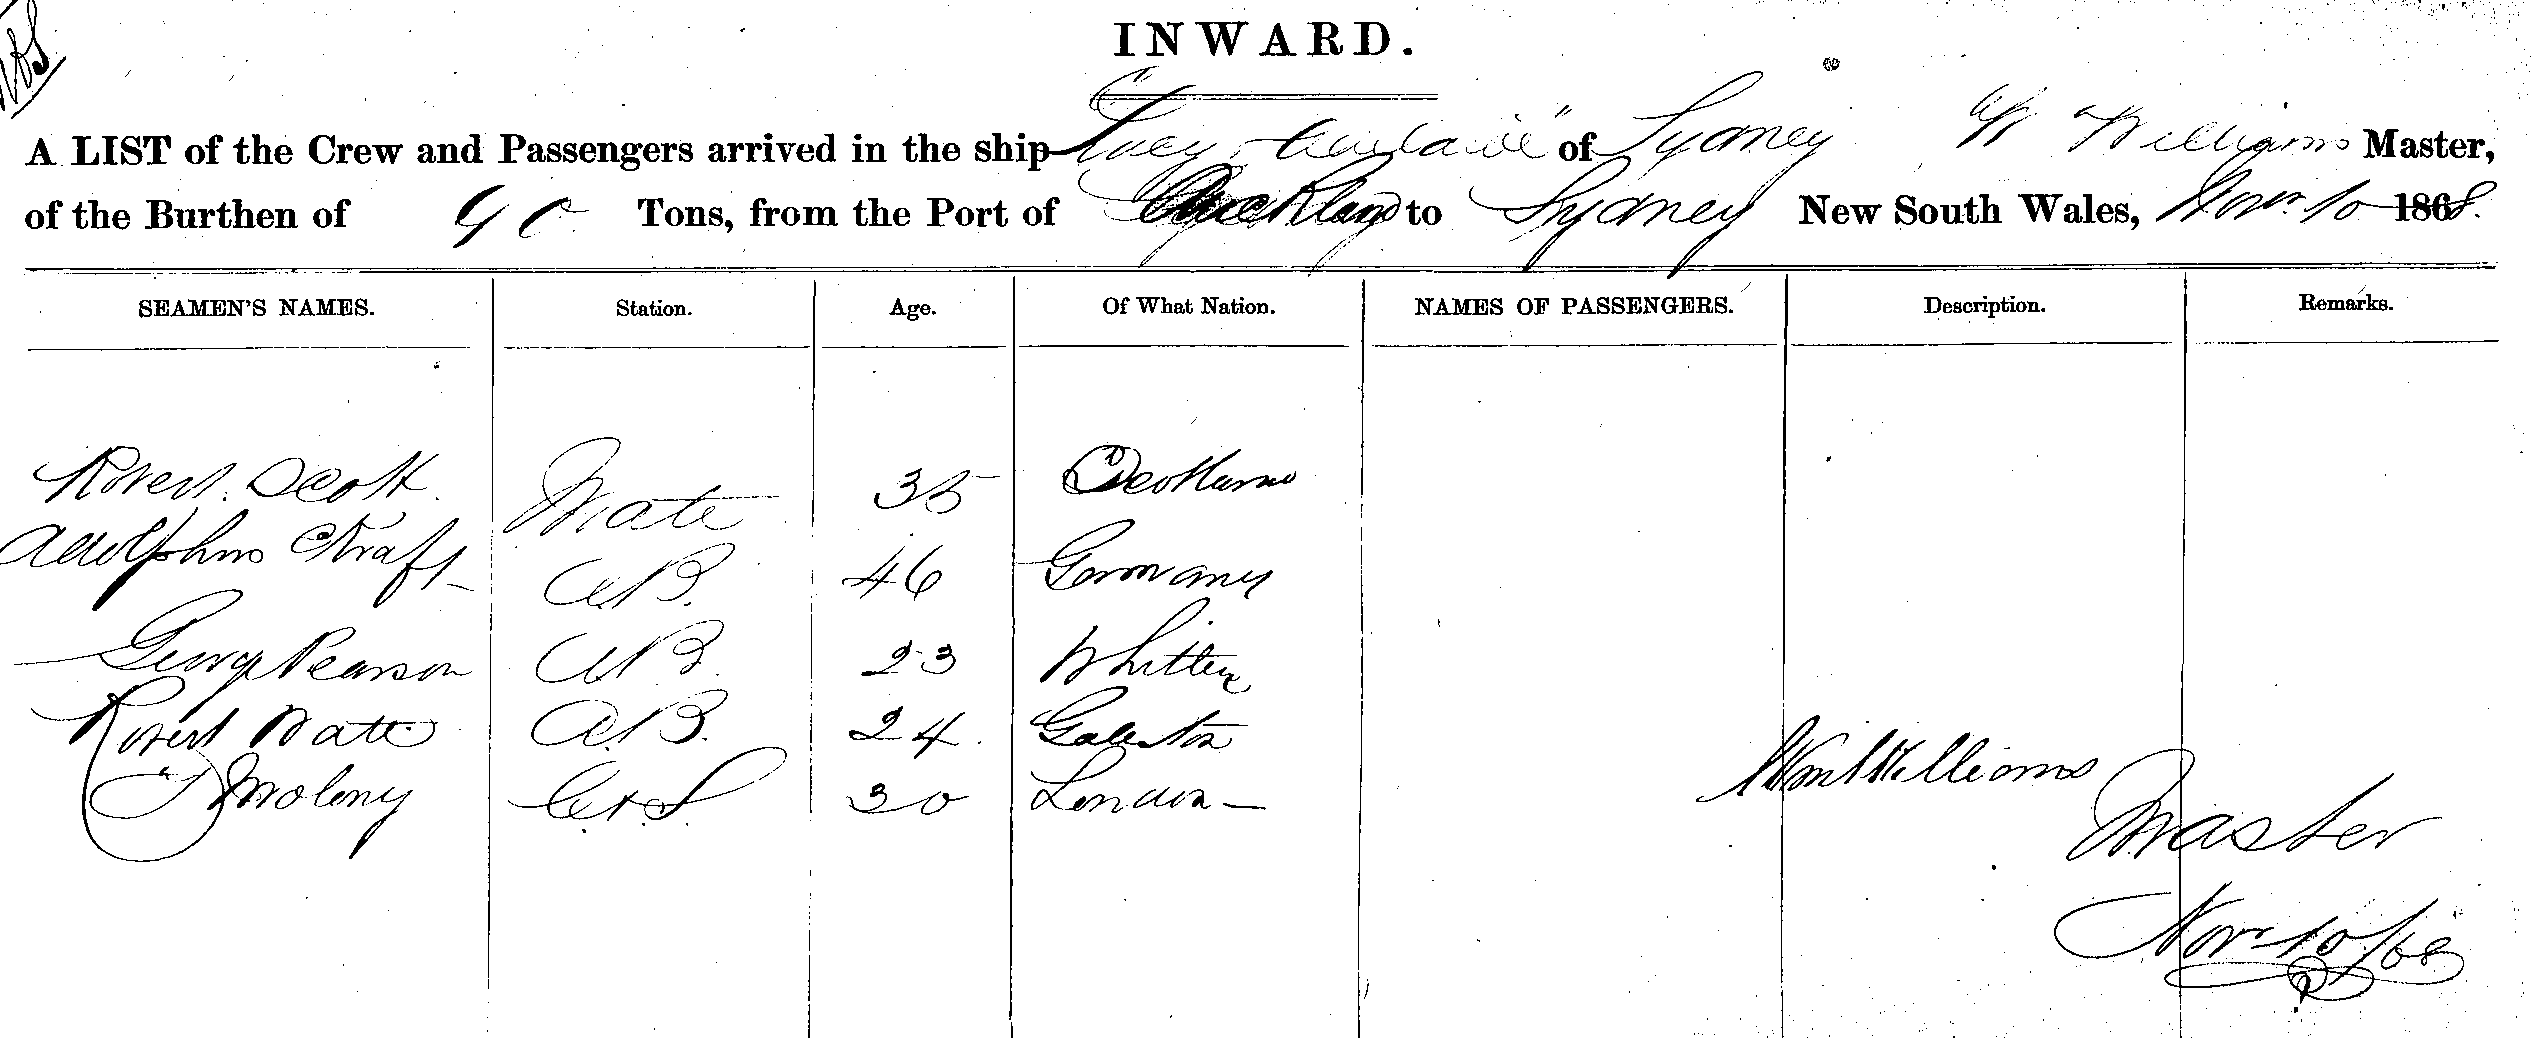 INWARD.
A LIST of the Crew and Passengers arrived in the ship "Lucy Adelaide" of Sydney W Williams Master,
of the Burthen of 90 Tons, from the Port of Auckland to Sydney New South Wales, Novr. 10 1868.
SEAMEN'S NAMES. Station. Age. Of What Nation. NAMES OF PASSENGERS. Description. Remarks.
Robert Scott Mate 35 Scotland
Adolphus Kraft AB. 46 Germany
George Pearson AB. 23 Whitby
Robert Watt A.B. 24
J Molony C & S. 30 London
Wm Williams
Master
Novr 10/68